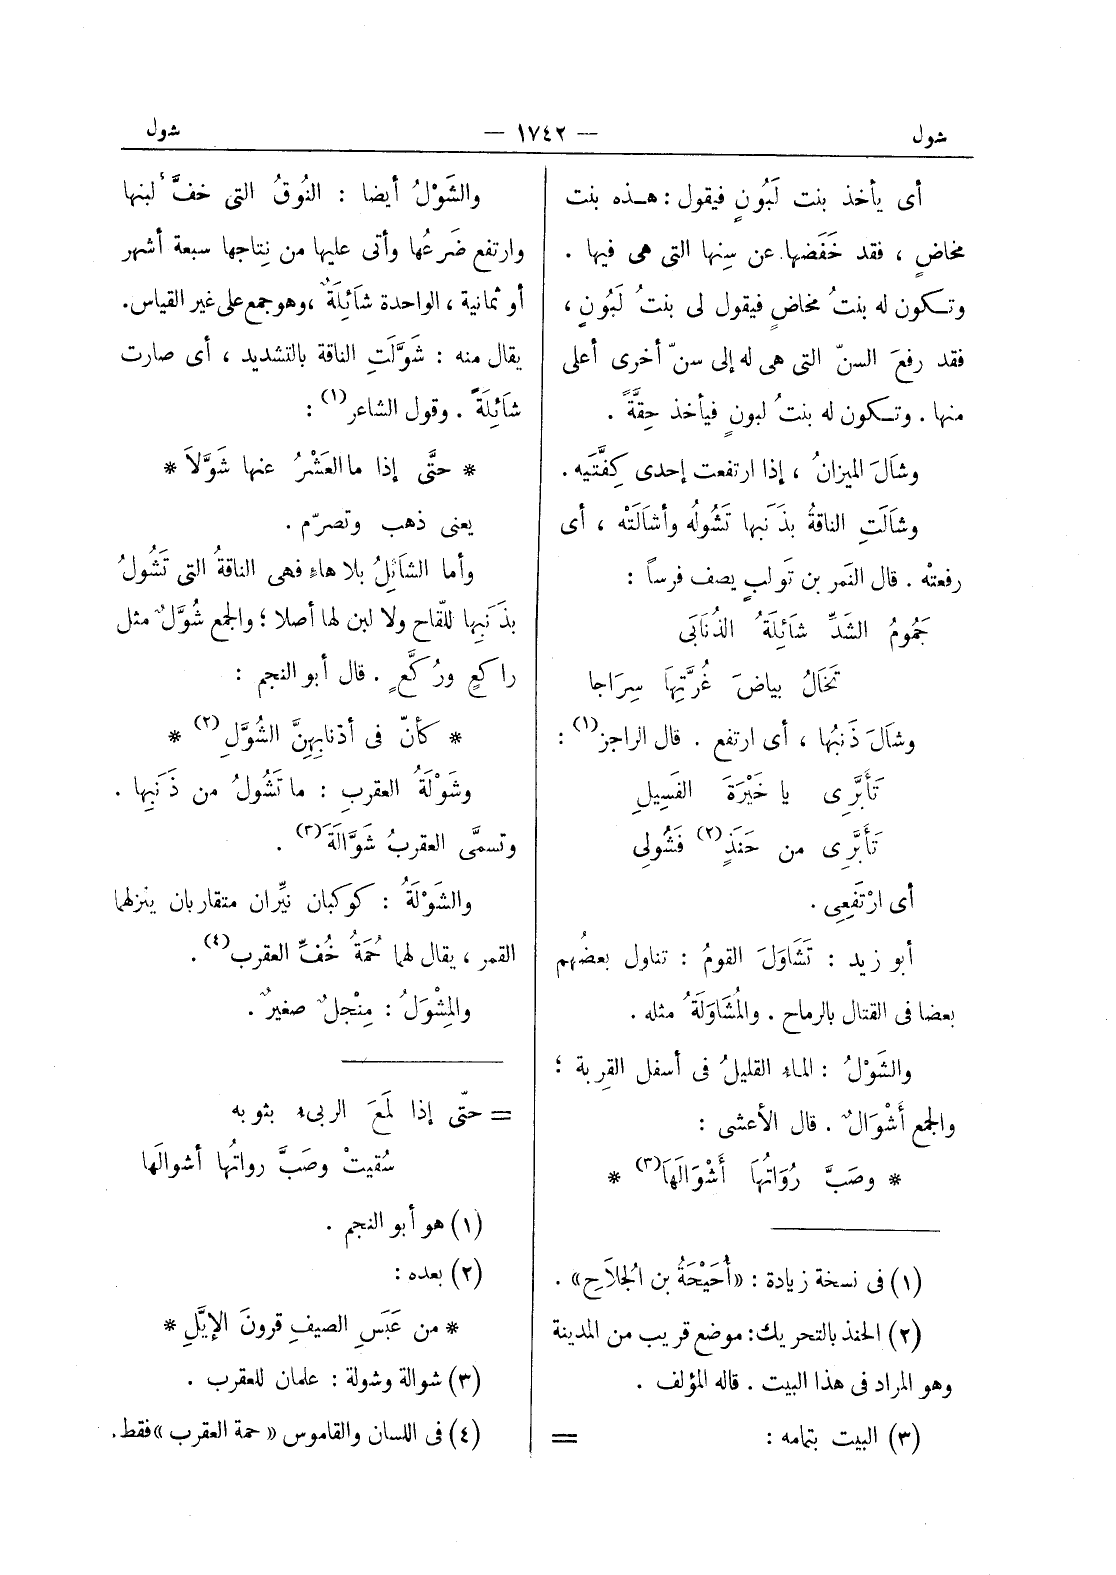 شول
— ١٧٤٢ —
شول
أى يأخذ بنت لَبُونٍ فيقول : هـذه بنت
مخاضٍ ، فقد خَفَضَها عن سِنها التى هى فيها .
وتـكون له بنتُ مخاضٍ فيقول لى بنتُ لَبُونٍ ،
فقد رفعَ السنّ التى هى له إلى سنّ أخرى أعلى
منها . وتـكون له بنتُ لبونٍ فيأخذ حِقَّةً .
وشَالَ الميزانُ ، إذا ارتفعت إحدى كِفَّتَيه .
وشَالَتِ الناقةُ بذَنَبها تَشُولُه وأشَالَتْه ، أى
رفعتْه . قال النَمر بن تَولبٍ يصف فرساً :
جَمُومُ الشَدِّ شَائِلَةُ الذُنَابَى
تَخَالُ بياضَ غُرَّتِهَا سِرَاجا
وشَالَ ذَنَبُها ، أى ارتفع . قال الراجز (١) :
تَأَبَّرِى يا خَيْرَةَ الفَسِيلِ
تَأَبَّرِى من حَنَذٍ (٢) فَشُولِى
أى ارْتَفِعِى .
أبو زيد : تَشَاوَلَ القومُ : تناول بعضُهم
بعضا فى القتال بالرماح . والمُشَاوَلَةُ مثله .
والشَوْلُ : الماء القليلُ فى أسفل القِربة ؛
والجمع أَشْوَالٌ . قال الأعشى :
* وصَبَّ رُوَاتُهَا أَشْوَالَهَا (٣) *
(١) فى نسخة زيادة : «أُحَيْحَةُ بن الجُلَاحِ» .
(٢) الحنذ بالتحريك: موضع قريب من المدينة
وهو المراد فى هذا البيت . قاله المؤلف .
(٣) البيت بتمامه : =
والشَوْلُ أيضا : النُوقُ التى خفَّ لبنها
وارتفع ضَرعُها وأتى عليها من نِتاجها سبعة أشهر
أو ثمانية ، الواحدة شَائِلَةٌ ، وهو جمع على غير القياس.
يقال منه : شَوَّلَتِ الناقة بالتشديد ، أى صارت
شَائِلَةً . وقول الشاعر (١) :
* حتَّى إذا ما العَشْرُ عنها شَوَّلَا *
يعنى ذهب وتصرّم .
وأما الشَائِلُ بلا هاءٍ فهى الناقةُ التى تَشُولُ
بذَنَبِها للّقاح ولا لبن لها أصلا ؛ والجمع شُوَّلٌ مثل
راكعٍ ورُكَّعٍ . قال أبو النجم :
* كأنّ فى أذنابِهِنَّ الشُوَّلِ (٢) *
وشَوْلَةُ العقربِ : ما تَشُولُ من ذَنَبِها .
وتسمَّى العقربُ شَوَّالَةَ (٣) .
والشَوْلَةُ : كوكبان نيِّران متقاربان ينزلهما
القمر ، يقال لهما حُمَةُ خُفِّ العقرب (٤) .
والمِشْوَلُ : مِنْجلٌ صغيرٌ .
= حتّى إذا لَمَعَ الربىء بثوبه
سُقيتْ وصَبَّ رواتُها أشوالَها
(١) هو أبو النجم .
(٢) بعده :
* من عَبَسِ الصيفِ قرونَ الإيَّلِ *
(٣) شوالة وشولة : علمان للعقرب .
(٤) فى اللسان والقاموس « حمة العقرب » فقط.